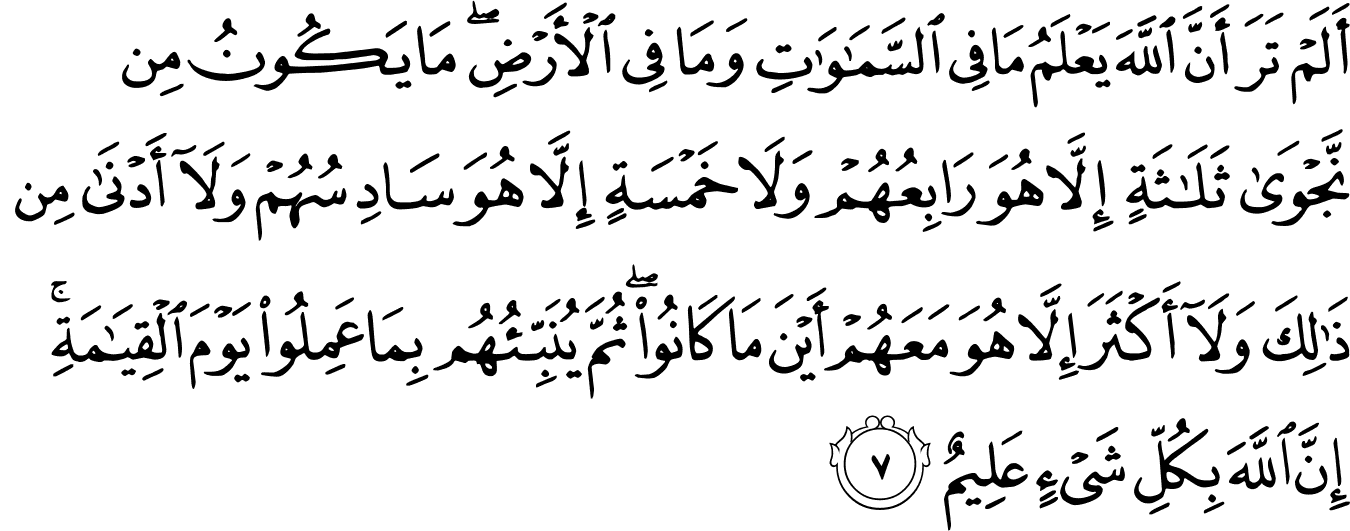 أَلَمْ تَرَ أَنَّ ٱللَّهَ يَعْلَمُ مَا فِى ٱلسَّمَـٰوَٰتِ وَمَا فِى ٱلْأَرْضِ ۖ مَا يَكُونُ مِن
نَّجْوَىٰ ثَلَـٰثَةٍ إِلَّا هُوَ رَابِعُهُمْ وَلَا خَمْسَةٍ إِلَّا هُوَ سَادِسُهُمْ وَلَآ أَدْنَىٰ مِن
ذَٰلِكَ وَلَآ أَكْثَرَ إِلَّا هُوَ مَعَهُمْ أَيْنَ مَا كَانُوا۟ ۖ ثُمَّ يُنَبِّئُهُم بِمَا عَمِلُوا۟ يَوْمَ ٱلْقِيَـٰمَةِ ۚ
إِنَّ ٱللَّهَ بِكُلِّ شَىْءٍ عَلِيمٌ ٧